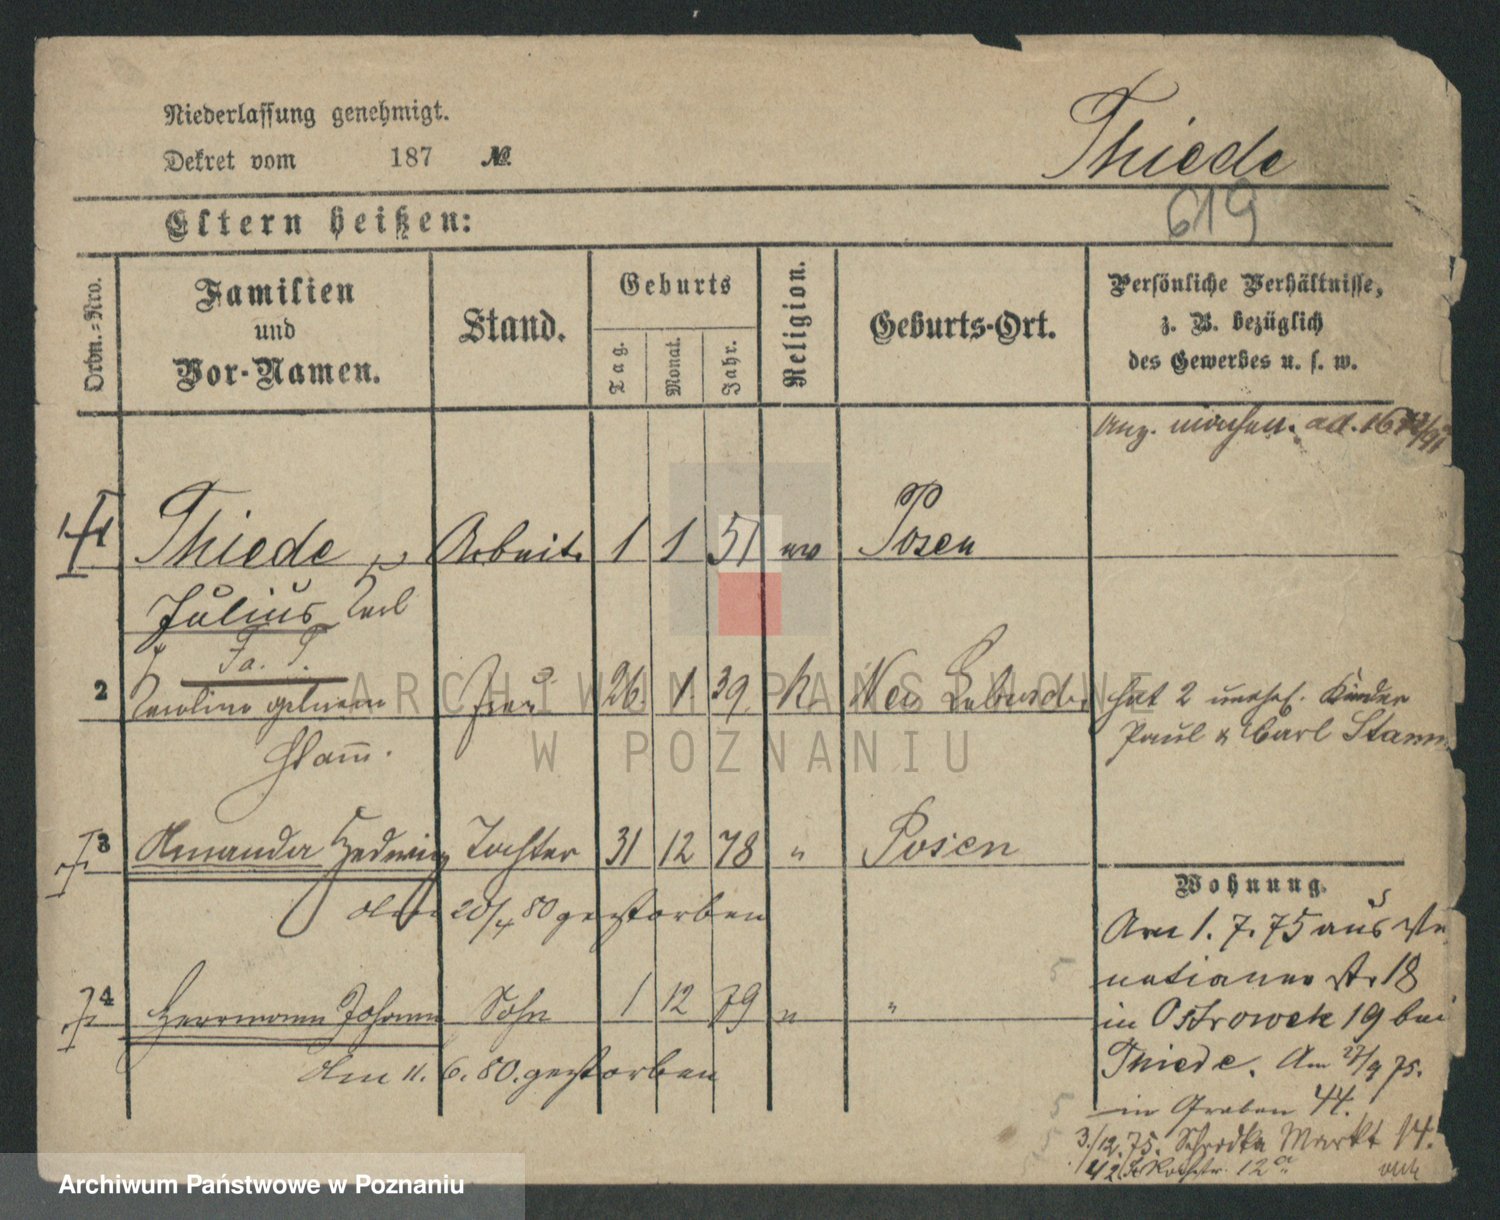 Niederlassung genehmigt.
Dekret vom 187 №.
Thiede
619
Eltern heißen:
Ordn.-Nro.
Familien
und
Vor-Namen.
Stand.
Geburts
Tag.
Monat.
Jahr.
Religion.
Geburts-Ort.
Persönliche Verhältnisse,
z. B. bezüglich
des Gewerbes u. s. w.
ad. 16
Thiede Arbeit. 1 1 51 ev Posen
Julius Carl
2 Caroline geborene Frau 26. 1 39. k. Neu hat 2 unehel. Kinder
Stam̅. Paul & Carl Stamm
3 Amanda Hedwig Tochter 31 12 78 " Posen
am 20/4 80 gestorben
4 Herrmann Johann Sohn 1 12 79 " "
Am 11. 6. 80. gestorben
Wohnung.
Am 1. 7. 75 aus Ve
netianer str 18
in Ostrowek 19 bei
Thiede. Am 27/9 75.
in Graben 44.
3./12. 75. Schrodka Markt 14.
12a
ARCHIWUM PAŃSTWOWE
W POZNANIU
Archiwum Państwowe w Poznaniu